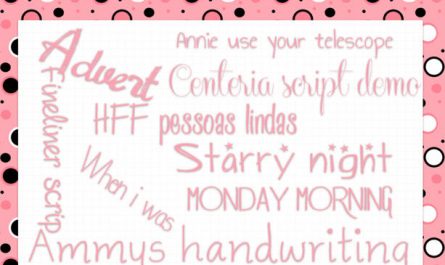 Advert
Annie use your telescope
Centeria script demo
Fineliner scrip
HFF pessoas lindas
Starry night
When i was
MONDAY MORNING
Ammys handwriting